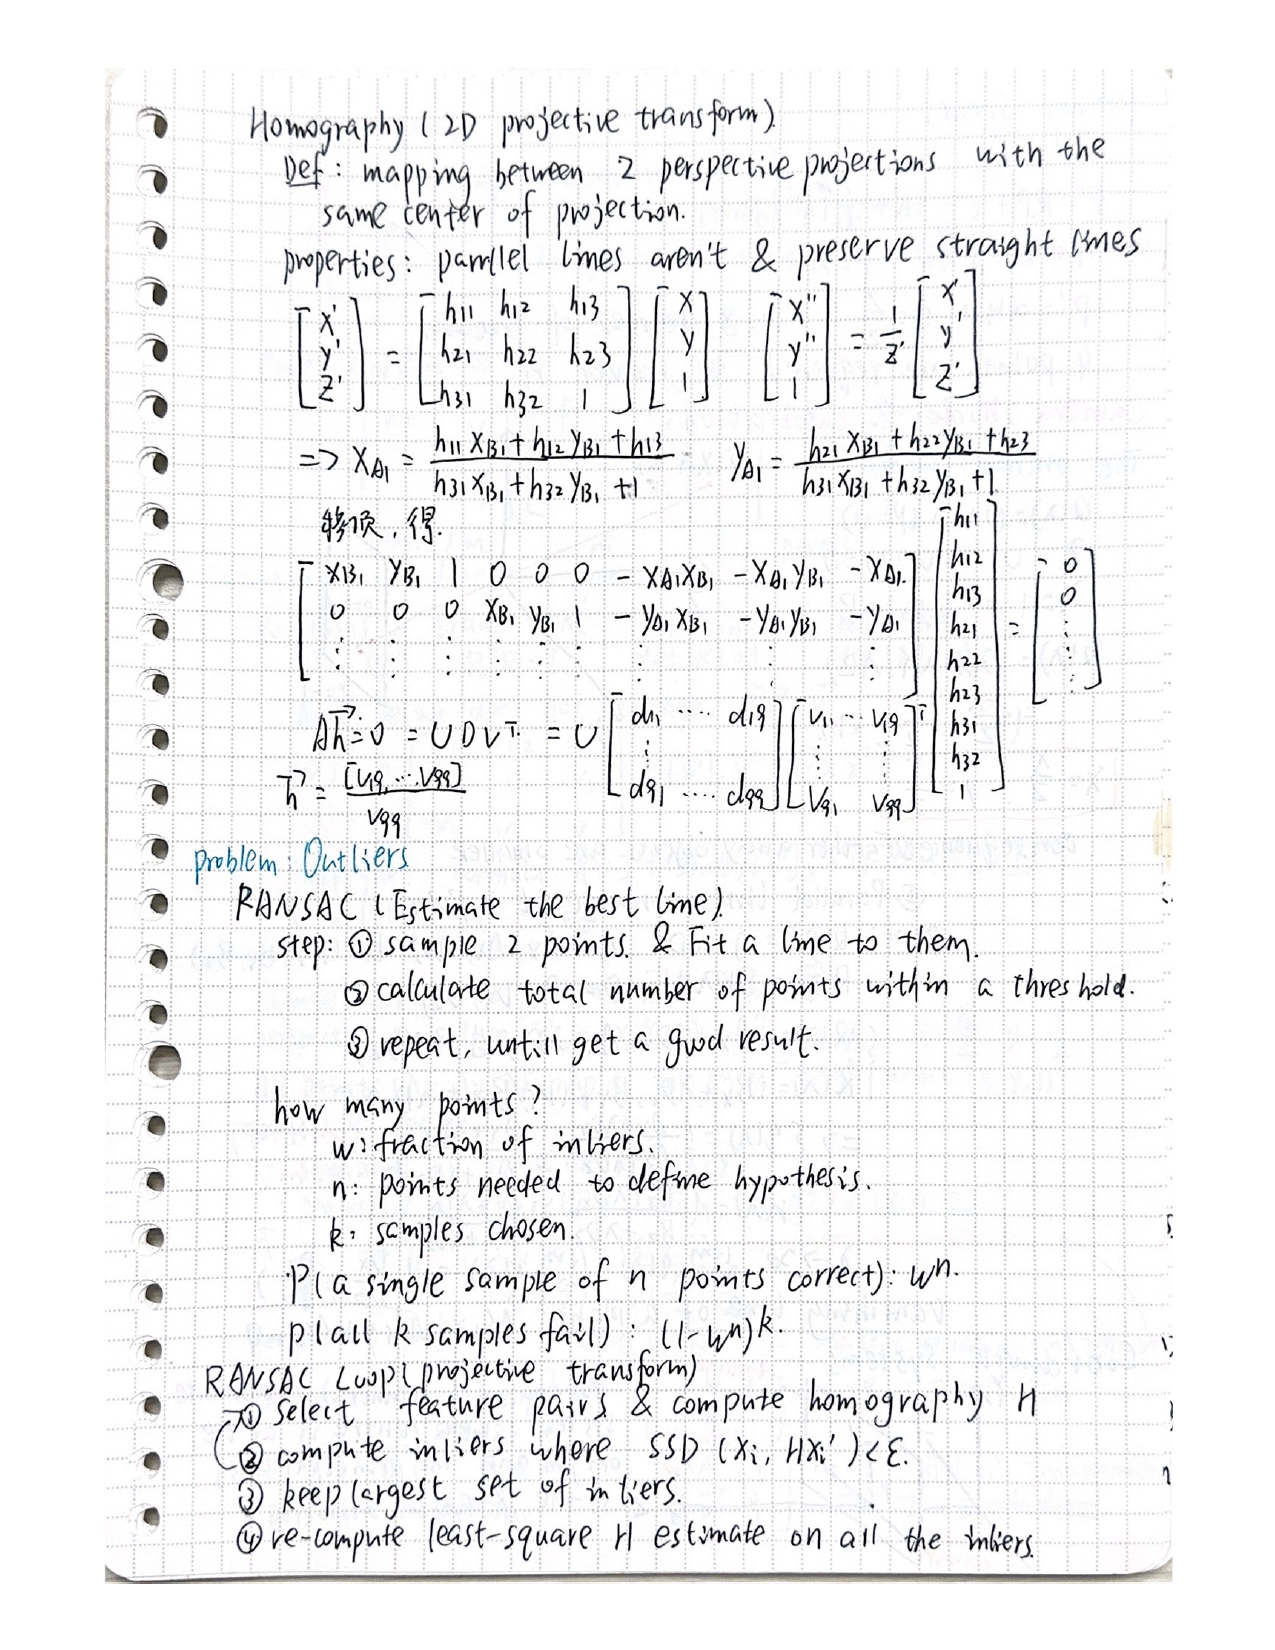 Homography ( 2D projective transform).
Def : mapping between 2 perspective projections with the
same center of projection.
properties: parallel lines aren't & preserve straight lines
[x' y' z'] = [h11 h12 h13 h21 h22 h23 h31 h32 1] [x y 1]   [x'' y'' 1] = 1/z' [x' y' z']
=> xA1 = (h11 xB1 + h12 yB1 + h13) / (h31 xB1 + h32 yB1 + 1)   yA1 = (h21 xB1 + h22 yB1 + h23) / (h31 xB1 + h32 yB1 + 1)
移项,得.
[xB1 yB1 1 0 0 0 -xA1xB1 -xA1yB1 -xA1 0 0 0 xB1 yB1 1 -yA1xB1 -yA1yB1 -yA1 ⋮ ⋮ ⋮ ⋮ ⋮ ⋮ ⋮ ⋮ ⋮] [h11 h12 h13 h21 h22 h23 h31 h32 1] = [0 0 ⋮]
Ah⃗=0 = UDV^T = U [d11 ···· d19 ⋮ d91 ···· d99] [v11 ··· v19 ⋮ ⋮ v91 v99]^T
h⃗ = [v19, ... v99] / v99
problem: Outliers
RANSAC (Estimate the best line).
step: ① sample 2 points. & Fit a line to them.
② calculate total number of points within a threshold.
③ repeat, untill get a good result.
how many points?
w: fraction of inliers.
n: points needed to define hypothesis.
k: samples chosen.
P(a single sample of n points correct): w^n.
p(all k samples fail) : (1-w^n)^k.
RANSAC Loop(projective transform)
① select feature pairs & compute homography H
② compute inliers where SSD (xi, Hxi') < ε.
③ keep largest set of inliers.
④ re-compute least-square H estimate on all the inliers.